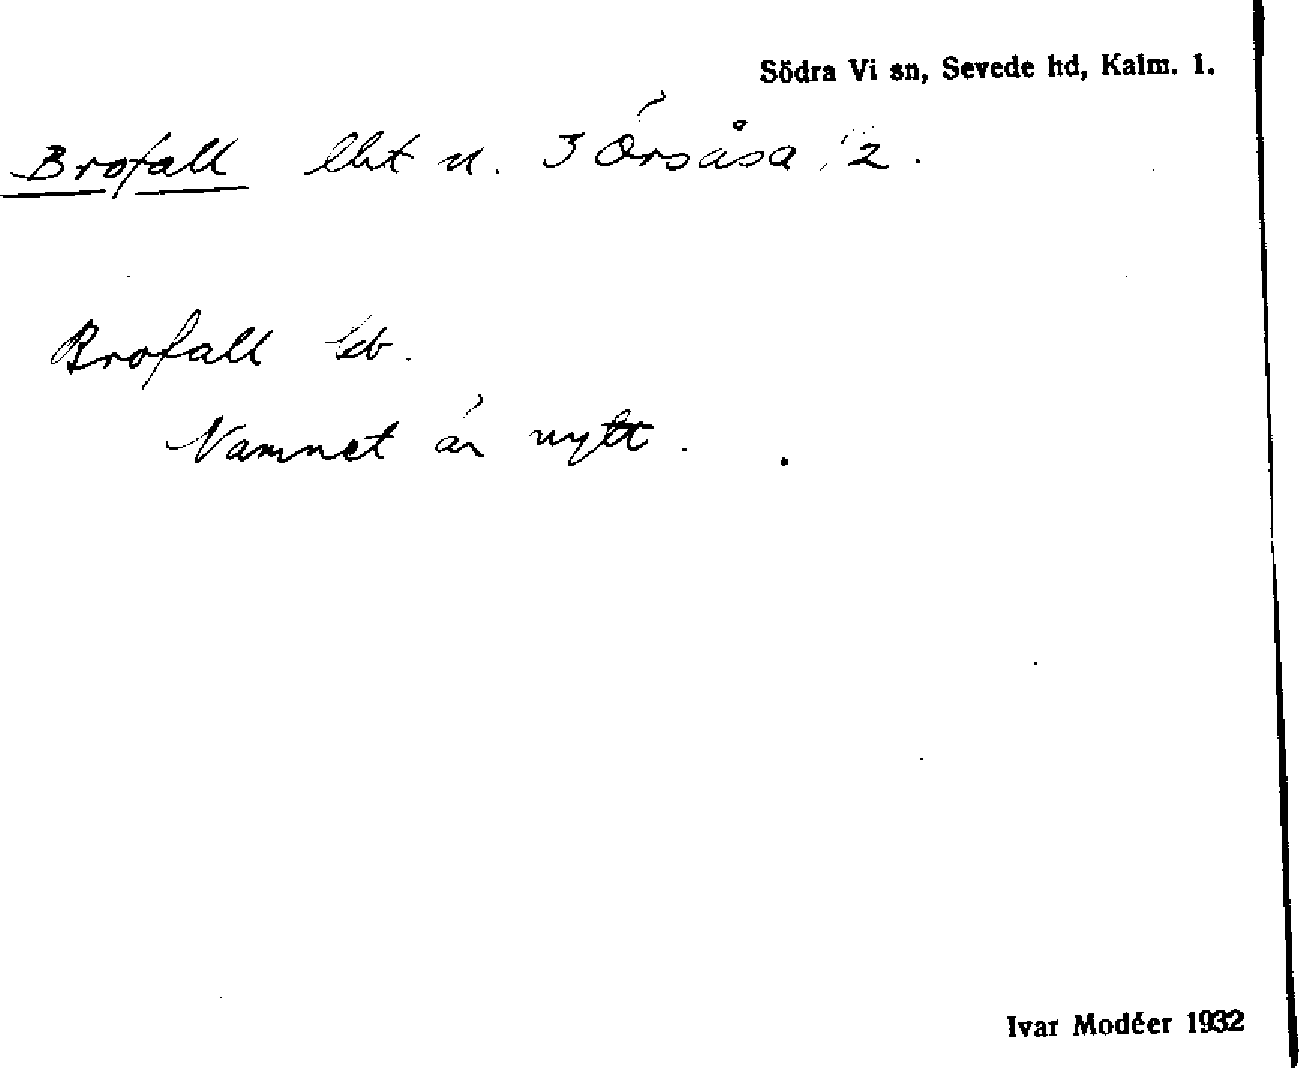 Södra Vi sn, Sevede hd, Kalm. l.
Brofall lht u. 3 Örsåsa 1/2.
Brofall Eb.
Namnet är nytt.
Ivar Modéer 1932